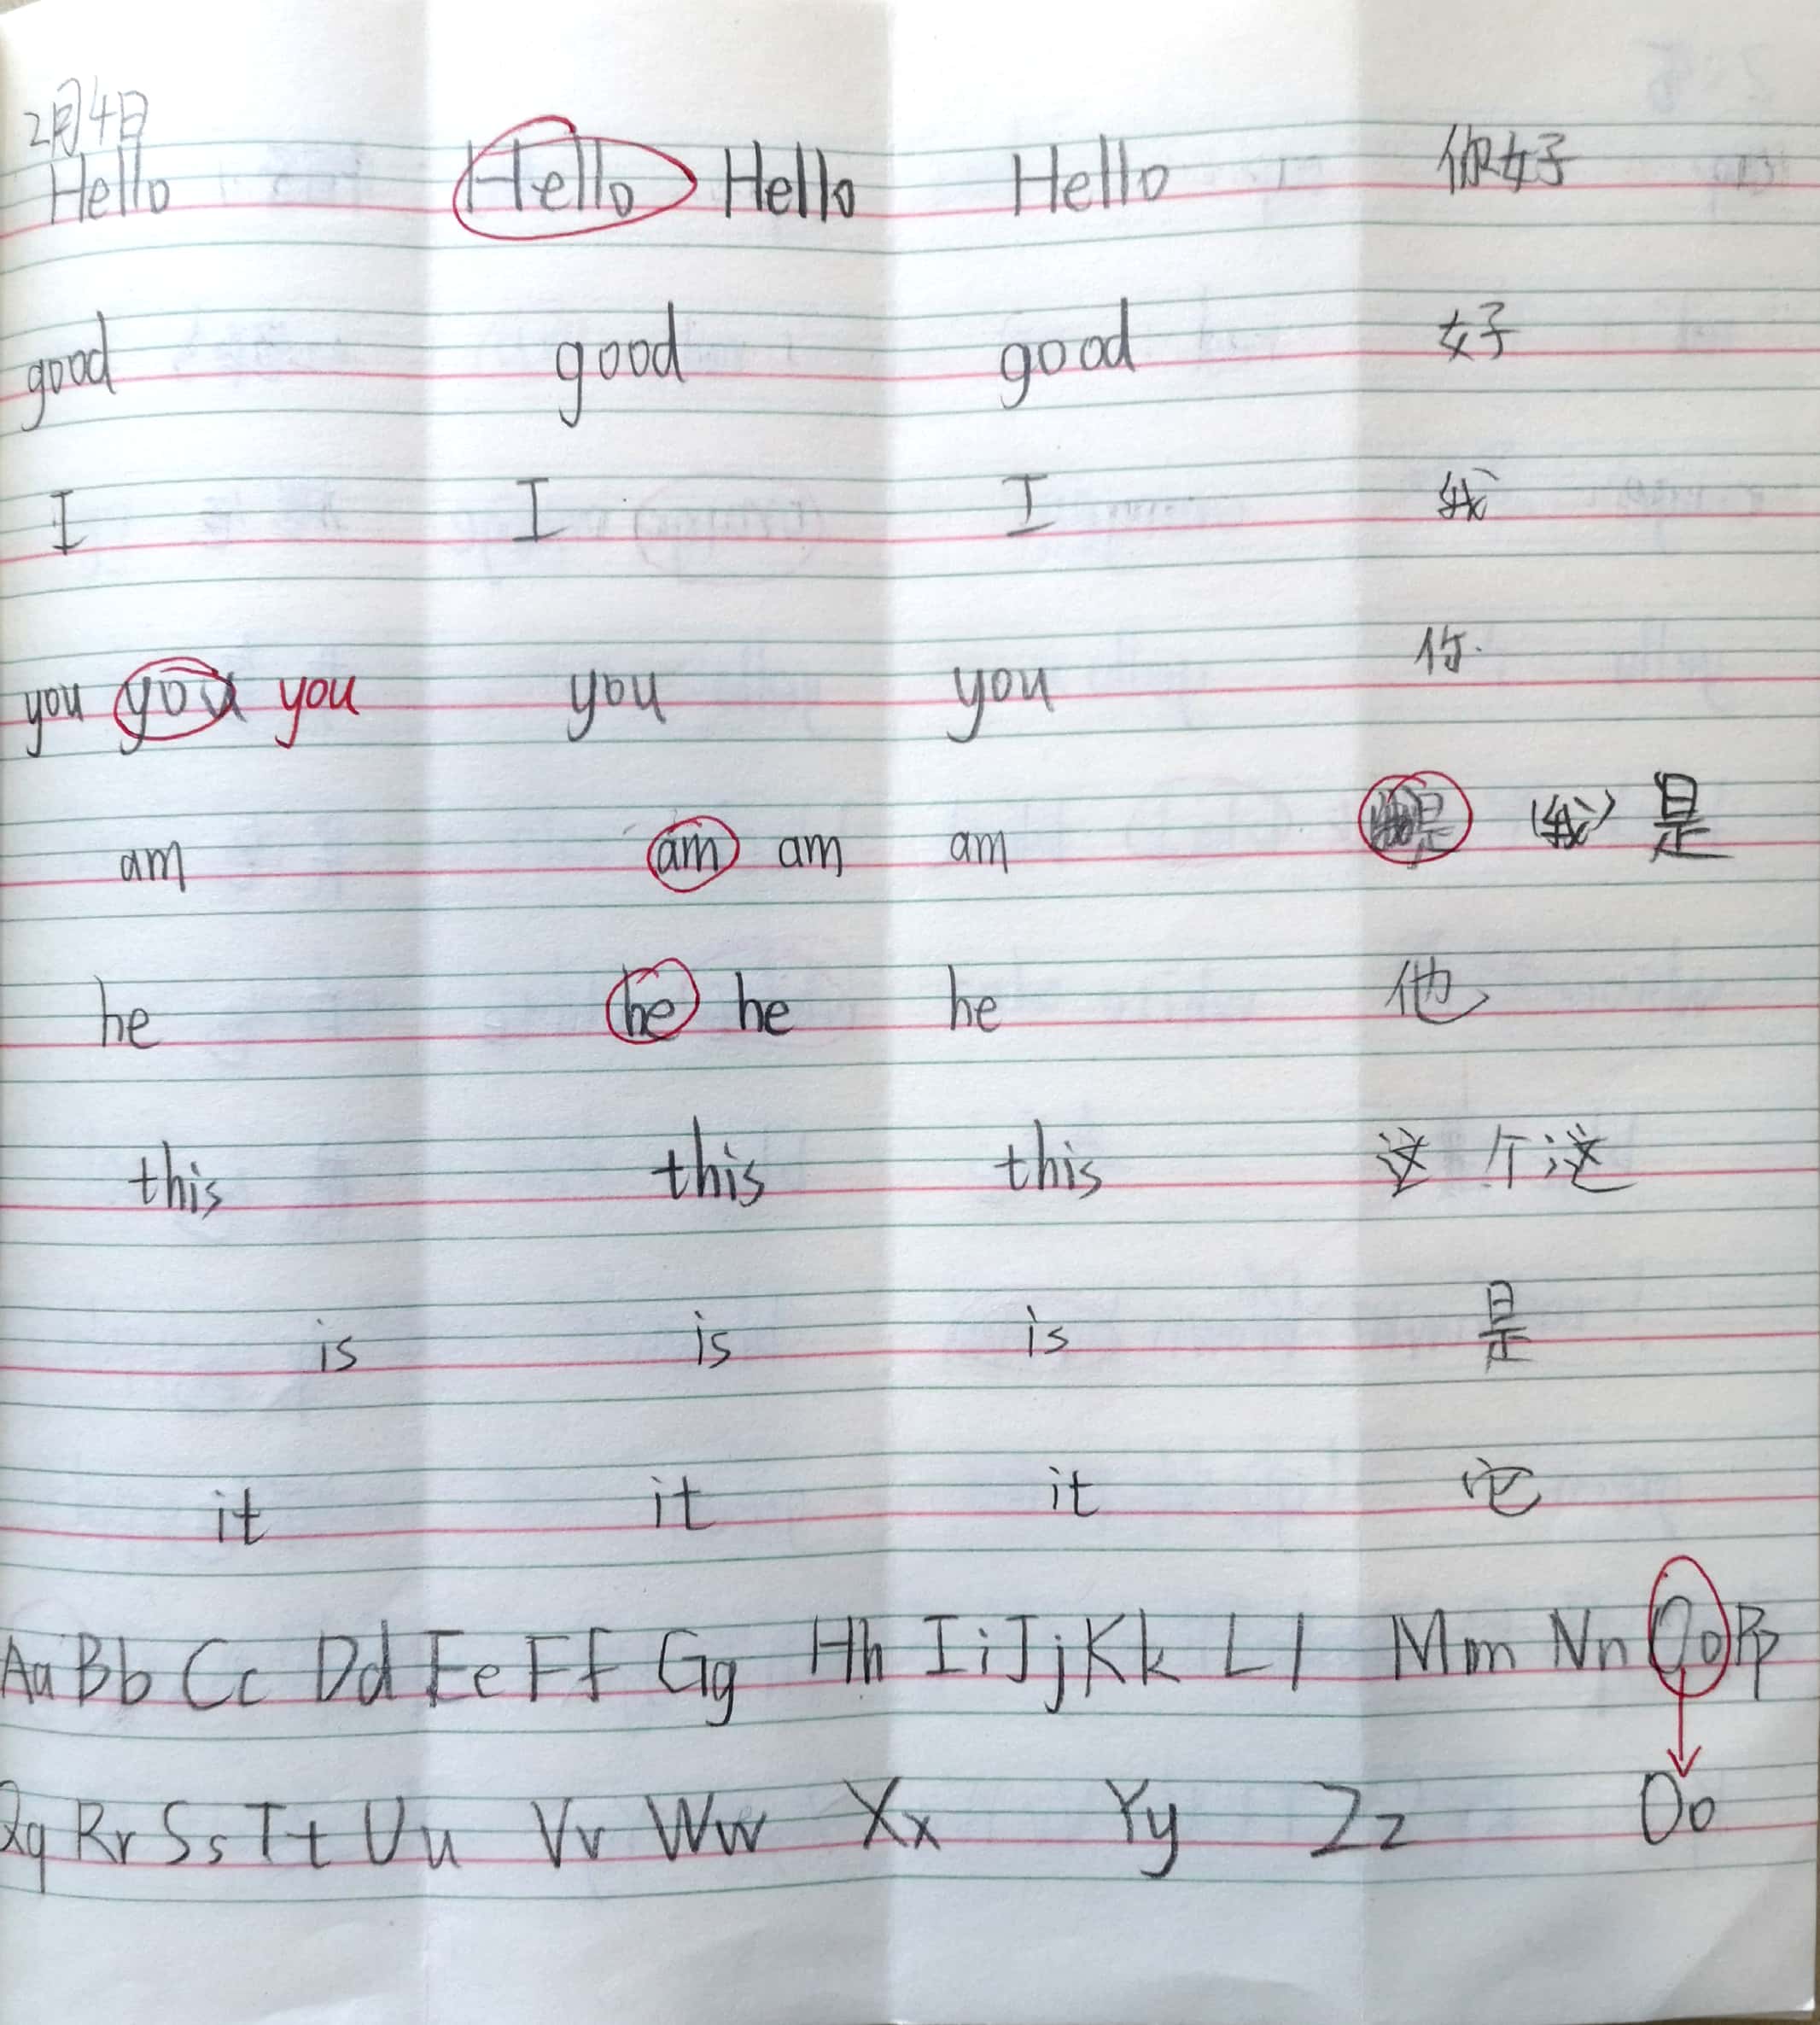 2月4日
Hello Hello Hello Hello 你好
good good good 好
I I I 我
you you you you you 你
am am am am 是 (我) 是
he he he he 他
this this this 这 个 这
is is is 是
it it it 它
Aa Bb Cc Dd Ee Ff Gg Hh Ii Jj Kk Ll Mm Nn Oo Pp
Qq Rr Ss Tt Uu Vv Ww Xx Yy Zz Oo